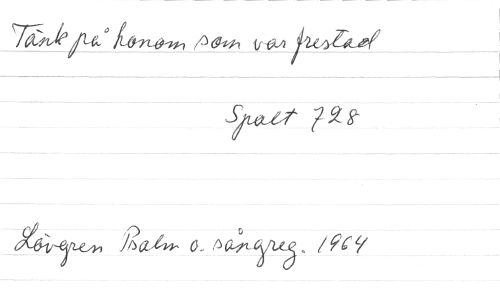 Tänk på honom som var frestad
Spalt 728
Lövgren Psalm o. sångreg. 1964